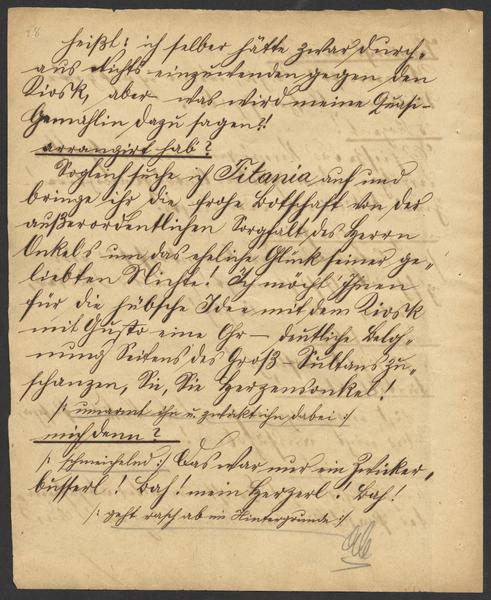 28
heißt: ich selber hätte zwar durch-
aus Nichts einzuwenden gegen den
Kiosk, aber was wird meine Quasi-
Gemahlin dazu sagen?!
arrangirt hab?
Sogleich suche ich Titania auf und
bringe ihr die frohe Botschaft von der
außerordentlichen Sorgfalt des Herrn
Onkels um das eheliche Glück seiner ge-
liebten Nichte! Ich möcht' Ihnen
für die hübsche Idee mit dem Kiosk
mit Gusto eine Ohr- deutliche Beloh-
nung Seitens des Groß-Sultans zu-
schanzen, Sie, Sie Herzensonkel!
/: umarmt ihn u. zwickt ihn dabei :/
mich denn?
/: schmeichelnd :/ Das war nur ein Zwicker-
busserl! Bah! mein Herzerl! Bah!
/: geht rasch ab im Hintergrunde :/